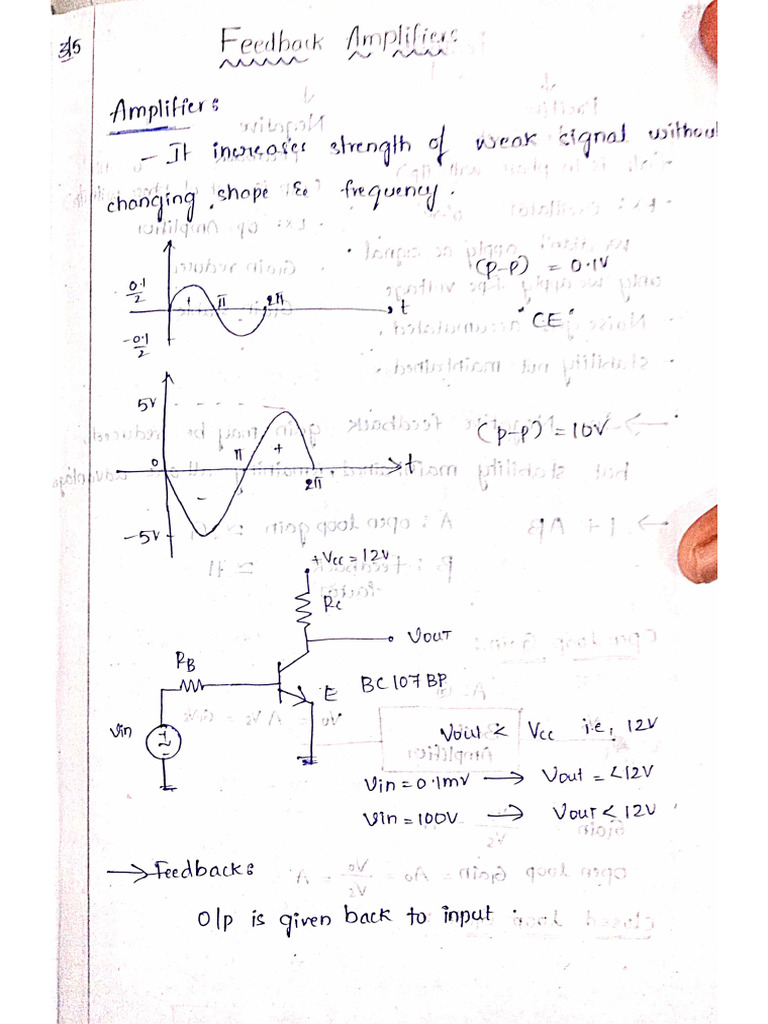 3/5
Feedback Amplifiers
Amplifier:
- It increases strength of weak signal without
changing shape & frequency.
0.1/2
-0.1/2
+
π
2π
t
(P-P) = 0.1V
"CE"
5V
0
-5V
-
π
+
2π
t
(P-P) = 10V
+Vcc = 12V
Rc
VOUT
RB
E
BC107BP
Vin
Vout < Vcc i.e, 12V
Vin = 0.1mv → Vout = <12V
Vin = 100V → Vout < 12V
→ Feedback:
O/p is given back to input.